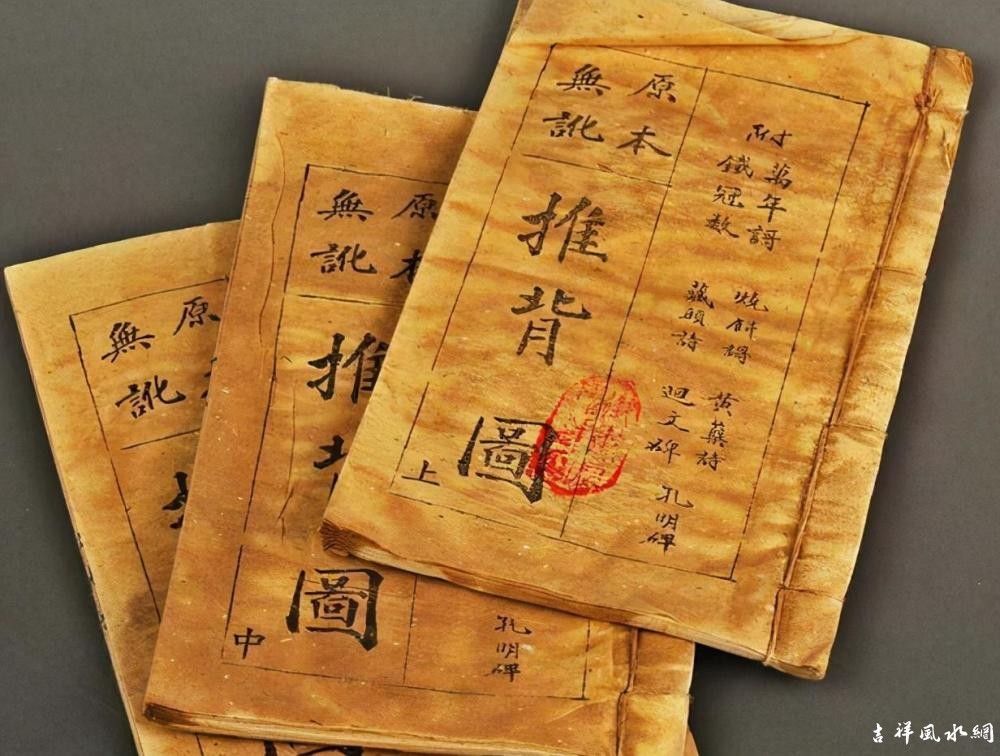 附
萬年謌
鐵冠数
燒餅謌
藏頭詩
黃蘗詩
迴文碑
孔明碑
原本
無訛
推背圖
上
原本
無訛
推背圖
中
孔明碑
原
無訛
吉祥風水網